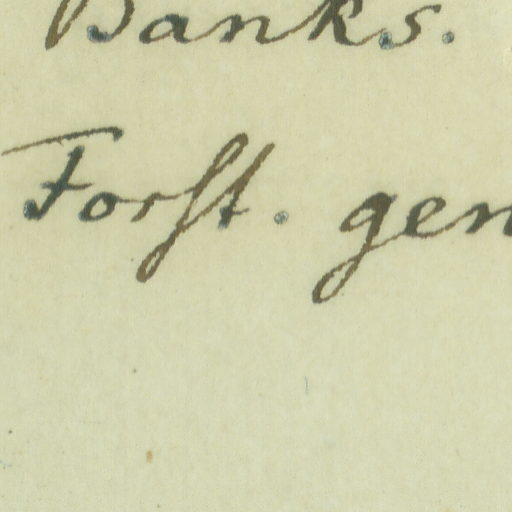 Banks.
Forſt. gen